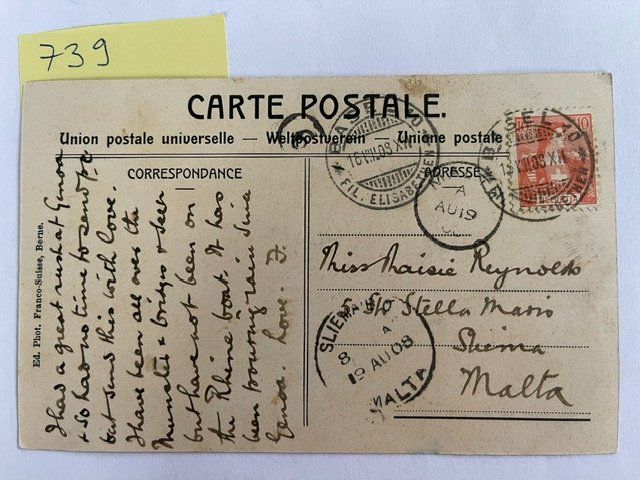 739
CARTE POSTALE.
Union postale universelle — Weltpostverein — Unione postale
CORRESPONDANCE
ADRESSE
Ed. Phot. Franco-Suisse, Berne.
I had a great rush at Genoa
& so had no time to send P.C
but send this with love.
I have been all over the
& bridges & seen
but have not been on
the Rhine boat. It has
been pouring rain since
Genoa. Love. J.
Miss Maisie Reynolds
5 Stella Maris
Sliema
Malta
BASEL 10
16.VIII.08.XI
FIL. ELISABETHEN
BASEL 10
VIII.08.XI
10
A
AU 19
SLIEMA
A
8
19 AU 08
MALTA